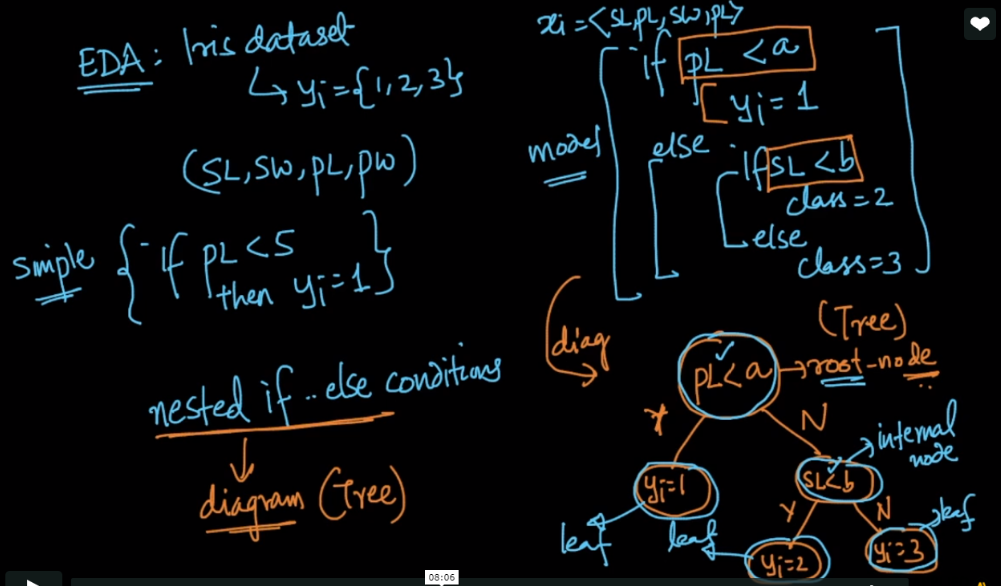 EDA: Iris dataset
↳ yi = {1, 2, 3}
(SL, SW, PL, PW)
simple { if PL < 5
then yi = 1 }
nested if .. else conditions
diagram (Tree)
xi = <SL, PL, SW, PL>
model
if PL < a
yi = 1
else
if SL < b
class = 2
else
class = 3
diag
(Tree)
PL < a → root-node
Y N
internal
node
yi = 1
SL < b
leaf
Y N
leaf
leaf
yi = 2
yi = 3
08:06